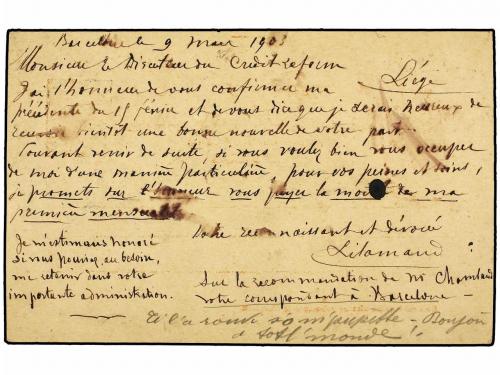 Barcelone le 9 Mars 1903
Monsieur le Directeur du Credit reform
Liége
J'ai l'honneur de vous confirmer ma
précédente du 15 février et de vous dire que je serais heureux de
recevoir bientôt une bonne nouvelle de votre part.
Pouvant venir de suite, si vous voulez bien vous occuper
de moi d'une manière particulière, pour vos peines et soins,
je promets sur l'honneur vous payer la moitié de ma
première mensualité
Votre reconnaissant et dévoué
Je m'estimais honoré
si vous pouviez, au besoin,
me retenir dans votre
importante administration.
Sur la recommandation de Mr
votre correspondant à Barcelone -
Bonjour
à tout l'monde!